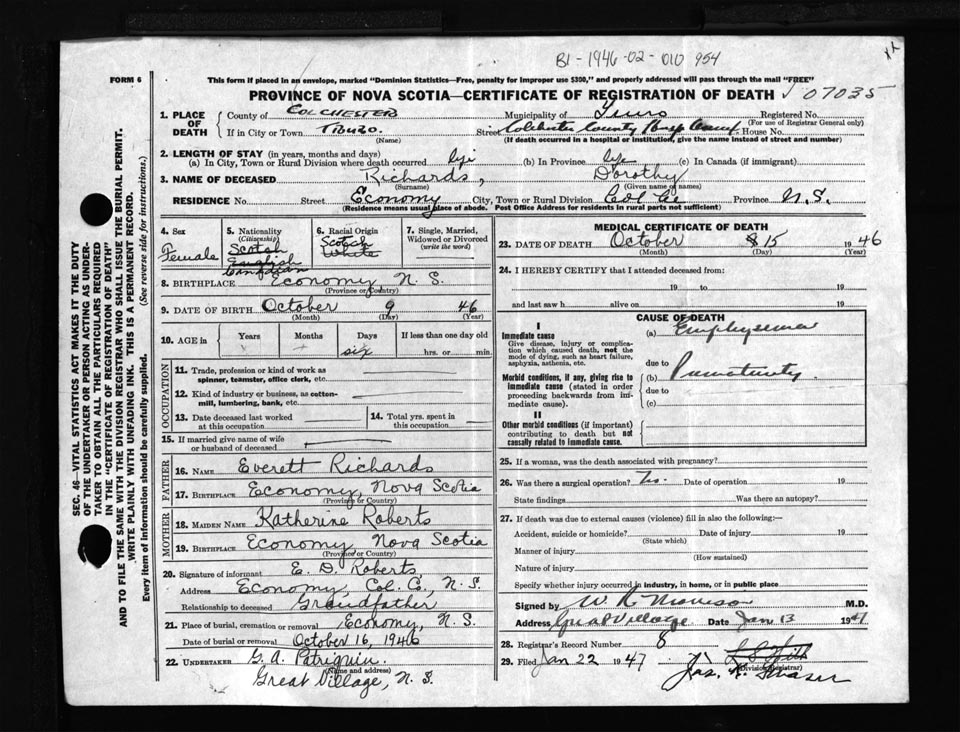 B1-1946-02-010 954
FORM 6
This form if placed in an envelope, marked "Dominion Statistics—Free, penalty for improper use $300," and properly addressed will pass through the mail "FREE"
PROVINCE OF NOVA SCOTIA—CERTIFICATE OF REGISTRATION OF DEATH 07035
1. PLACE OF DEATH County of COLCHESTER Municipality of Truro Registered No.
(For use of Registrar General only)
If in City or Town TRURO. Street Colchester County Hosp House No.
(Name) (If death occurred in a hospital or institution, give the name instead of street and number)
2. LENGTH OF STAY (in years, months and days)
(a) In City, Town or Rural Division where death occurred life (b) In Province life (c) In Canada (if immigrant)
3. NAME OF DECEASED Richards, Dorothy
(Surname) (Given name or names)
RESIDENCE No. Street Economy City, Town or Rural Division Col Co Province N.S.
(Residence means usual place of abode. Post Office Address for residents in rural parts not sufficient)
SEC. 46—VITAL STATISTICS ACT MAKES IT THE DUTY
OF THE UNDERTAKER OR PERSON ACTING AS UNDER-
TAKER TO OBTAIN ALL THE PARTICULARS REQUIRED
IN THE "CERTIFICATE OF REGISTRATION OF DEATH"
AND TO FILE THE SAME WITH THE DIVISION REGISTRAR WHO SHALL ISSUE THE BURIAL PERMIT.
WRITE PLAINLY WITH UNFADING INK. THIS IS A PERMANENT RECORD.
Every item of information should be carefully supplied. (See reverse side for instructions.)
4. Sex Female
5. Nationality (Citizenship) Scotch English Canadian
6. Racial Origin Scotch White
7. Single, Married, Widowed or Divorced (write the word)
8. BIRTHPLACE Economy N. S.
(Province or Country)
9. DATE OF BIRTH October 9 46
(Month) (Day) (Year)
10. AGE in Years Months Days six If less than one day old hrs. or min.
OCCUPATION
11. Trade, profession or kind of work as spinner, teamster, office clerk, etc.
12. Kind of industry or business, as cotton-mill, lumbering, bank, etc.
13. Date deceased last worked at this occupation
14. Total yrs. spent in this occupation
15. If married give name of wife or husband of deceased
FATHER
16. NAME Everett Richards
17. BIRTHPLACE Economy, Nova Scotia
(Province or Country)
MOTHER
18. MAIDEN NAME Katherine Roberts
19. BIRTHPLACE Economy Nova Scotia
(Province or Country)
20. Signature of informant E. D. Roberts
Address Economy, Col. C., N. S.
Relationship to deceased Grandfather
21. Place of burial, cremation or removal Economy, N. S.
Date of burial or removal October 16, 1946
22. UNDERTAKER G. A. Patriquin.
(Name and address)
Great Village, N. S.
MEDICAL CERTIFICATE OF DEATH
23. DATE OF DEATH October 15 1946
(Month) (Day) (Year)
24. I HEREBY CERTIFY that I attended deceased from:
19 to 19
and last saw h alive on 19
CAUSE OF DEATH
I
Immediate cause
Give disease, injury or complication which caused death, not the mode of dying, such as heart failure, asphyxia, asthenia, etc.
(a) Emphysema
due to
Morbid conditions, if any, giving rise to immediate cause (stated in order proceeding backwards from immediate cause).
(b) Prematurity
due to
(c)
II
Other morbid conditions (if important) contributing to death but not causally related to immediate cause.
25. If a woman, was the death associated with pregnancy?
26. Was there a surgical operation? Date of operation 19
State findings Was there an autopsy?
27. If death was due to external causes (violence) fill in also the following:—
Accident, suicide or homicide? Date of injury 19
(State which)
Manner of injury
(How sustained)
Nature of injury
Specify whether injury occurred in industry, in home, or in public place
Signed by W R Morrison M.D.
Address Great Village Date Jan 13 1947
28. Registrar's Record Number 8
29. Filed Jan 22 1947
(Division Registrar)
Jas. Fraser